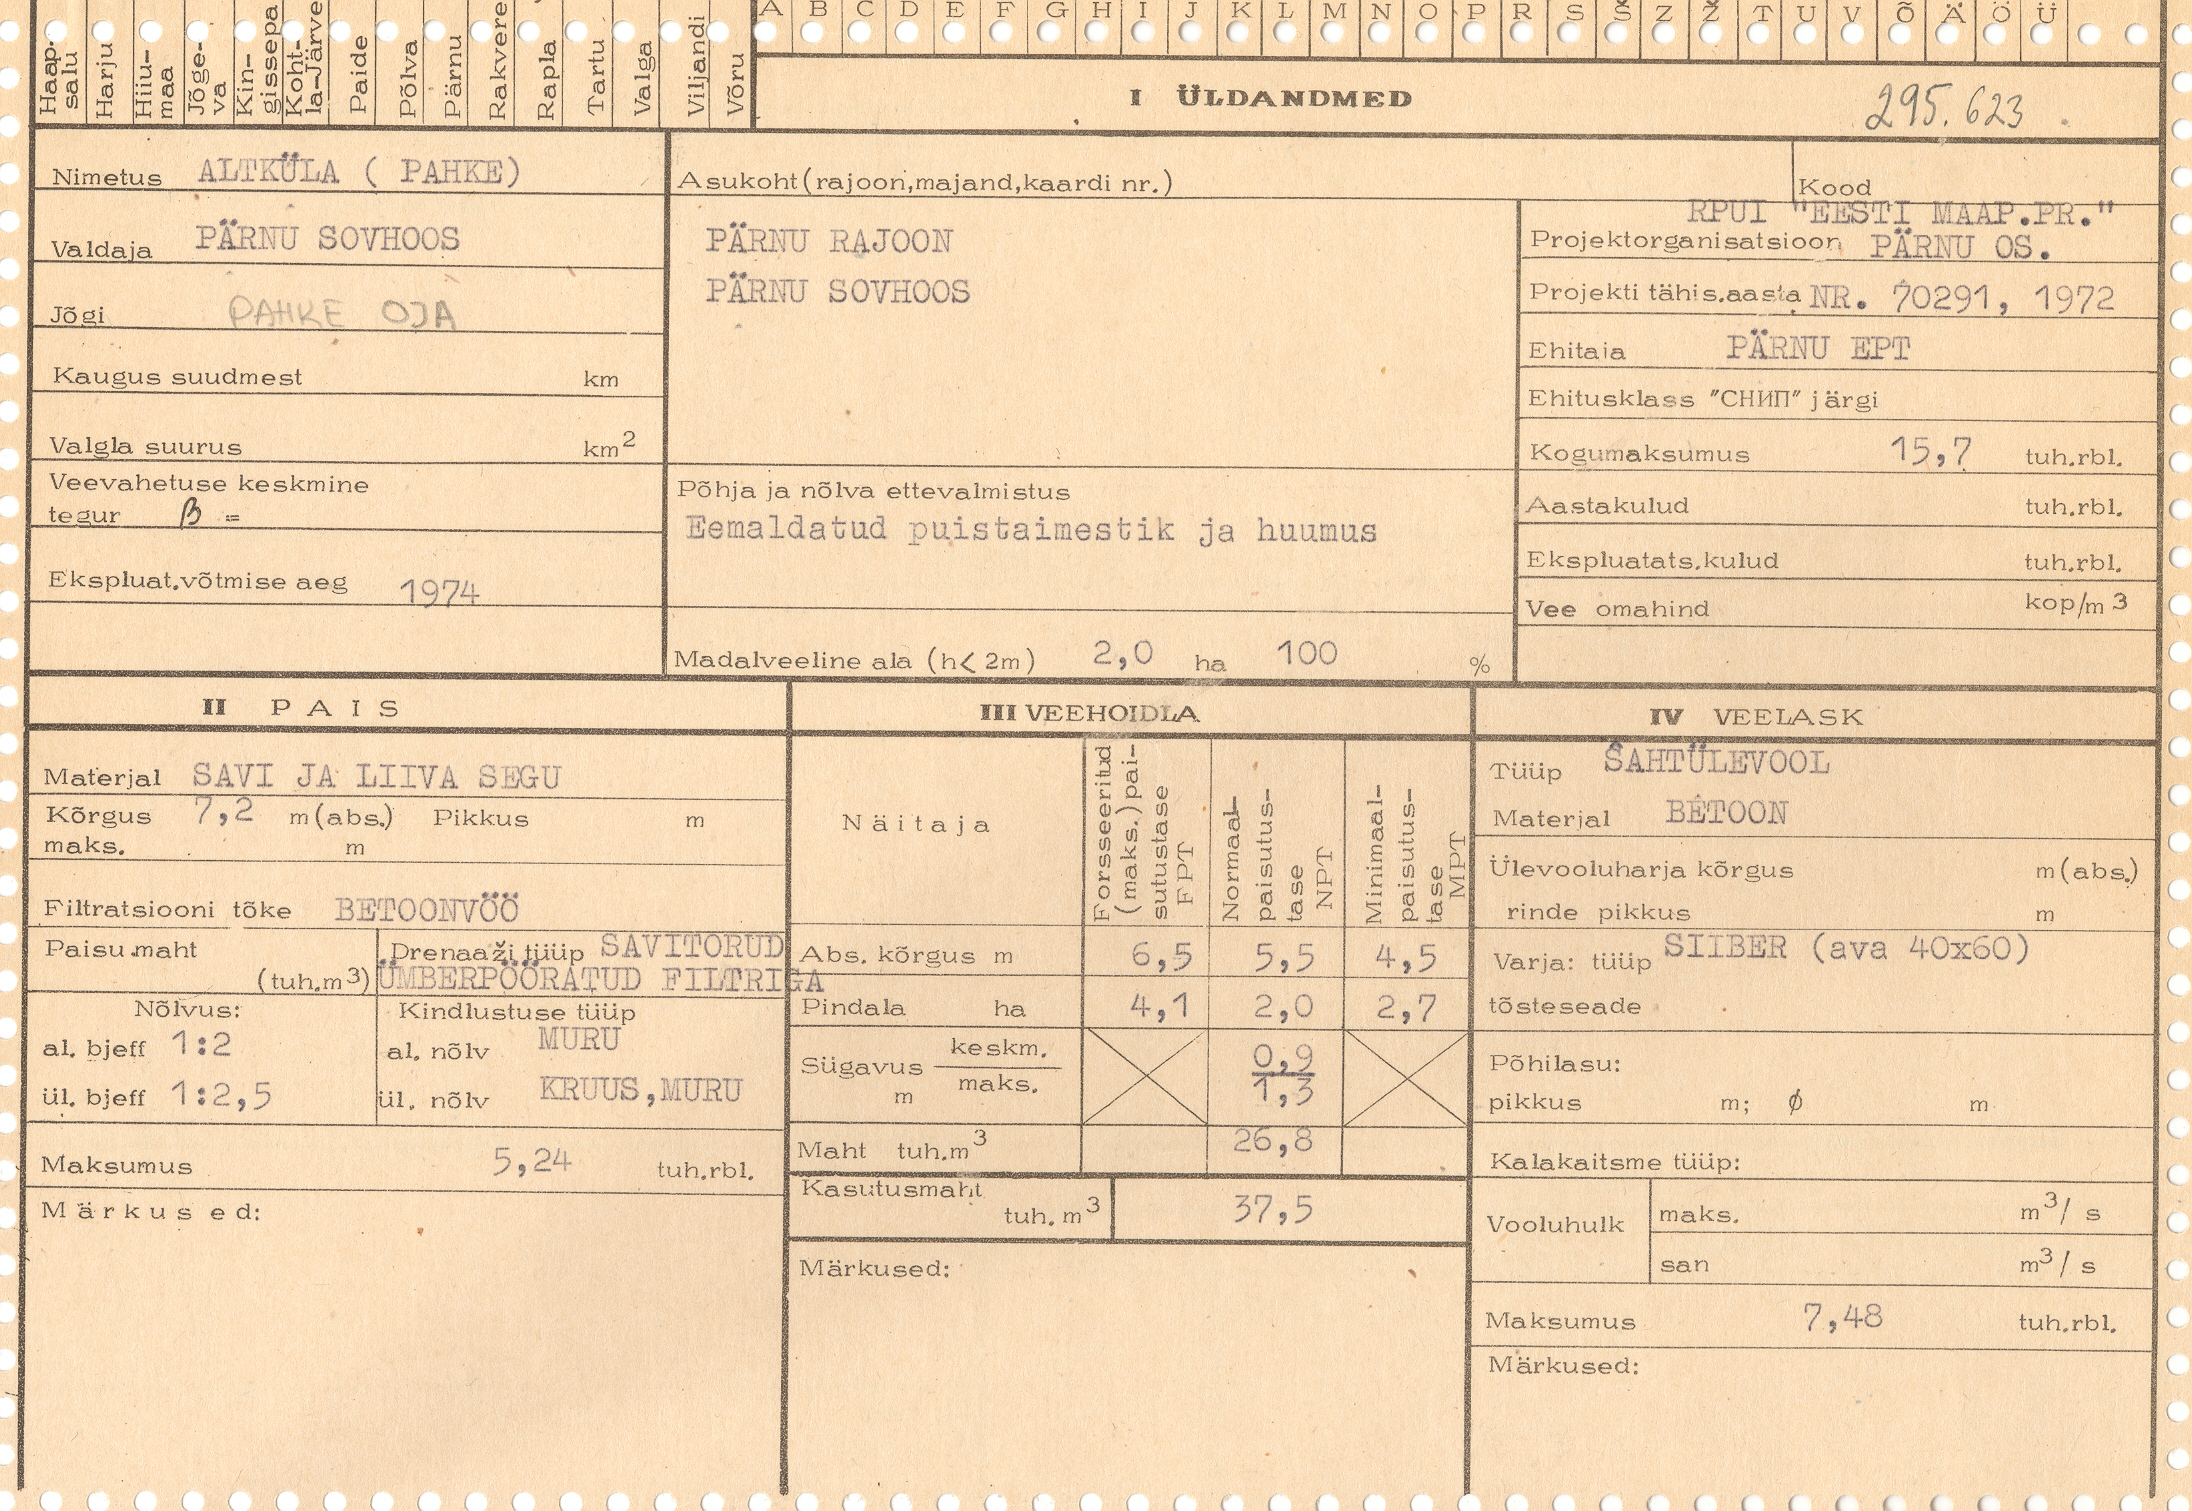 A B C D E F G H I J K L M N O P R S Š Z Ž T U V Õ Ä Ö Ü
Haap-
salu
Harju
Hiiu-
maa
Jõge-
va
Kin-
gissepa
Koht-
la-Järve
Paide
Põlva
Pärnu
Rakvere
Rapla
Tartu
Valga
Viljandi
Võru
I ÜLDANDMED
295.623
Nimetus ALTKÜLA ( PAHKE)
Valdaja PÄRNU SOVHOOS
Jõgi PAHKE OJA
Kaugus suudmest km
Valgla suurus km2
Veevahetuse keskmine
tegur β =
Ekspluat.võtmise aeg 1974
Asukoht(rajoon,majand,kaardi nr.)
PÄRNU RAJOON
PÄRNU SOVHOOS
Põhja ja nõlva ettevalmistus
Eemaldatud puistaimestik ja huumus
Madalveeline ala (h< 2m) 2,0 ha 100 %
Kood
RPUI "EESTI MAAP.PR."
Projektorganisatsioon PÄRNU OS.
Projekti tähis.aasta NR. 70291, 1972
Ehitaja PÄRNU EPT
Ehitusklass "СНИП" järgi
Kogumaksumus 15,7 tuh.rbl.
Aastakulud tuh.rbl.
Ekspluatats.kulud tuh.rbl.
Vee omahind kop/m3
II PAIS
Materjal SAVI JA LIIVA SEGU
Kõrgus 7,2 m(abs.) Pikkus m
maks. m
Filtratsiooni tõke BETOONVÖÖ
Paisu maht
(tuh.m3)
Drenaaži tüüp SAVITORUD
ÜMBERPÖÖRATUD FILTRIGA
Nõlvus:
al. bjeff 1:2
ül. bjeff 1:2,5
Kindlustuse tüüp
al. nõlv MURU
ül. nõlv KRUUS,MURU
Maksumus 5,24 tuh.rbl.
Märkused:
III VEEHOIDLA
Näitaja
Forsseeritud
(maks.)pai-
sutustase
FPT
Normaal-
paisutus-
tase
NPT
Minimaal-
paisutus-
tase
MPT
Abs. kõrgus m 6,5 5,5 4,5
Pindala ha 4,1 2,0 2,7
Sügavus keskm. 0,9
m maks. 1,3
Maht tuh.m3 26,8
Kasutusmaht
tuh. m3 37,5
Märkused:
IV VEELASK
Tüüp ŠAHTÜLEVOOL
Materjal BETOON
Ülevooluharja kõrgus m(abs.)
rinde pikkus m
Varja: tüüp SIIBER (ava 40x60)
tõsteseade
Põhilasu:
pikkus m; ø m
Kalakaitsme tüüp:
Vooluhulk maks. m3/ s
san m3/ s
Maksumus 7,48 tuh.rbl.
Märkused: